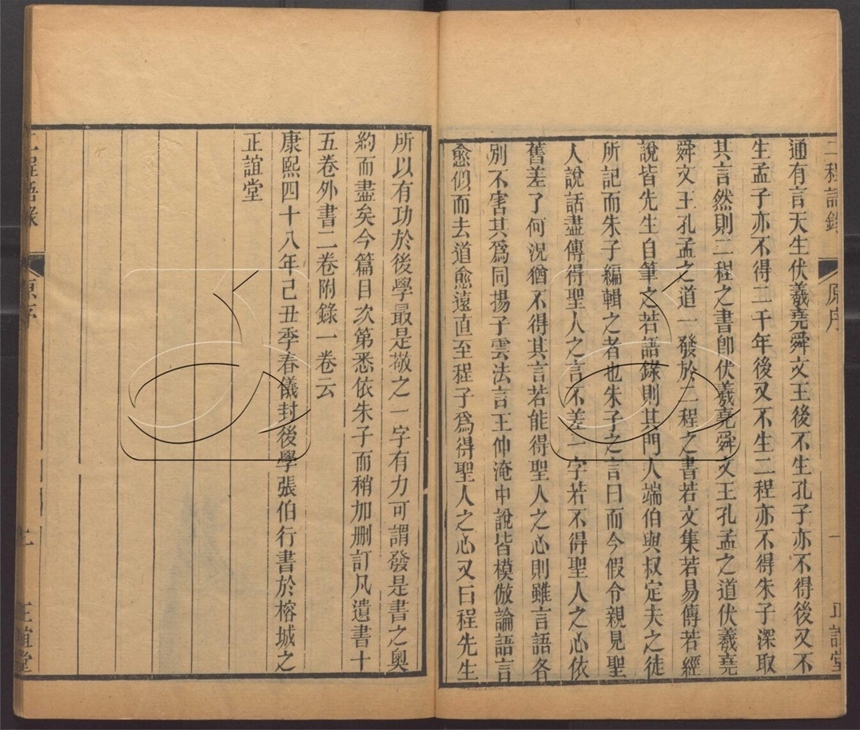 二程語錄 原序 一 正誼堂
通有言天生伏羲堯舜文王後不生孔子亦不得後又不
生孟子亦不得二千年後又不生二程亦不得朱子深取
其言然則二程之書卽伏羲堯舜文王孔孟之道伏羲堯
舜文王孔孟之道一發於二程之書若文集若易傳若經
說皆先生自筆之若語錄則其門人端伯與叔定夫之徒
所記而朱子編輯之者也朱子之言曰而今假令親見聖
人說話盡傳得聖人之言不差一字若不得聖人之心依
舊差了何況猶不得其言若能得聖人之心則雖言語各
別不害其爲同揚子雲法言王仲淹中說皆模倣論語言
愈似而去道愈遠直至程子爲得聖人之心又曰程先生
所以有功於後學最是敬之一字有力可謂發是書之奧
約而盡矣今篇目次第悉依朱子而稍加刪訂凡遺書十
五卷外書二卷附錄一卷云
康熙四十八年己丑季春儀封後學張伯行書於榕城之
正誼堂
二程語錄 原序 二 正誼堂